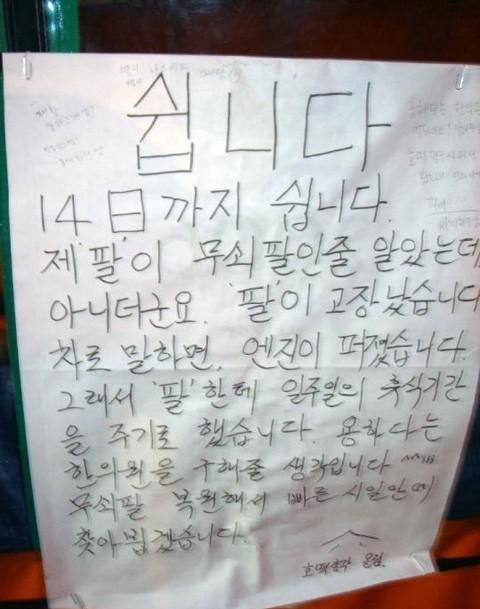 쉽니다
14日까지 쉽니다.
제 '팔'이 무쇠팔인줄 알았는데
아니더군요. '팔'이 고장났습니다
차로 말하면, 엔진이 퍼졌습니다.
그래서 '팔'한테 일주일의 휴식기간
을 주기로 했습니다. 용하다는
한의원을 구해줄 생각입니다
무쇠팔 복원해서 빠른 시일안에
찾아뵙겠습니다.
호떡총각 올림.